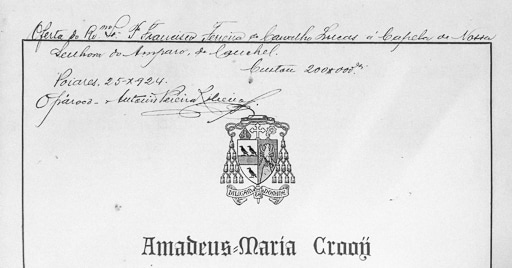 Oferta do Rv.mo Sr. P. Francisco Ferreira de Carvalho Lucas á Capela de Nossa
Senhora do Amparo, de Couchel.
Custou 200$000 rs
Poiares, 25-X-924.
O pároco - Antonio Pereira
Amadeus-Maria Crooÿ